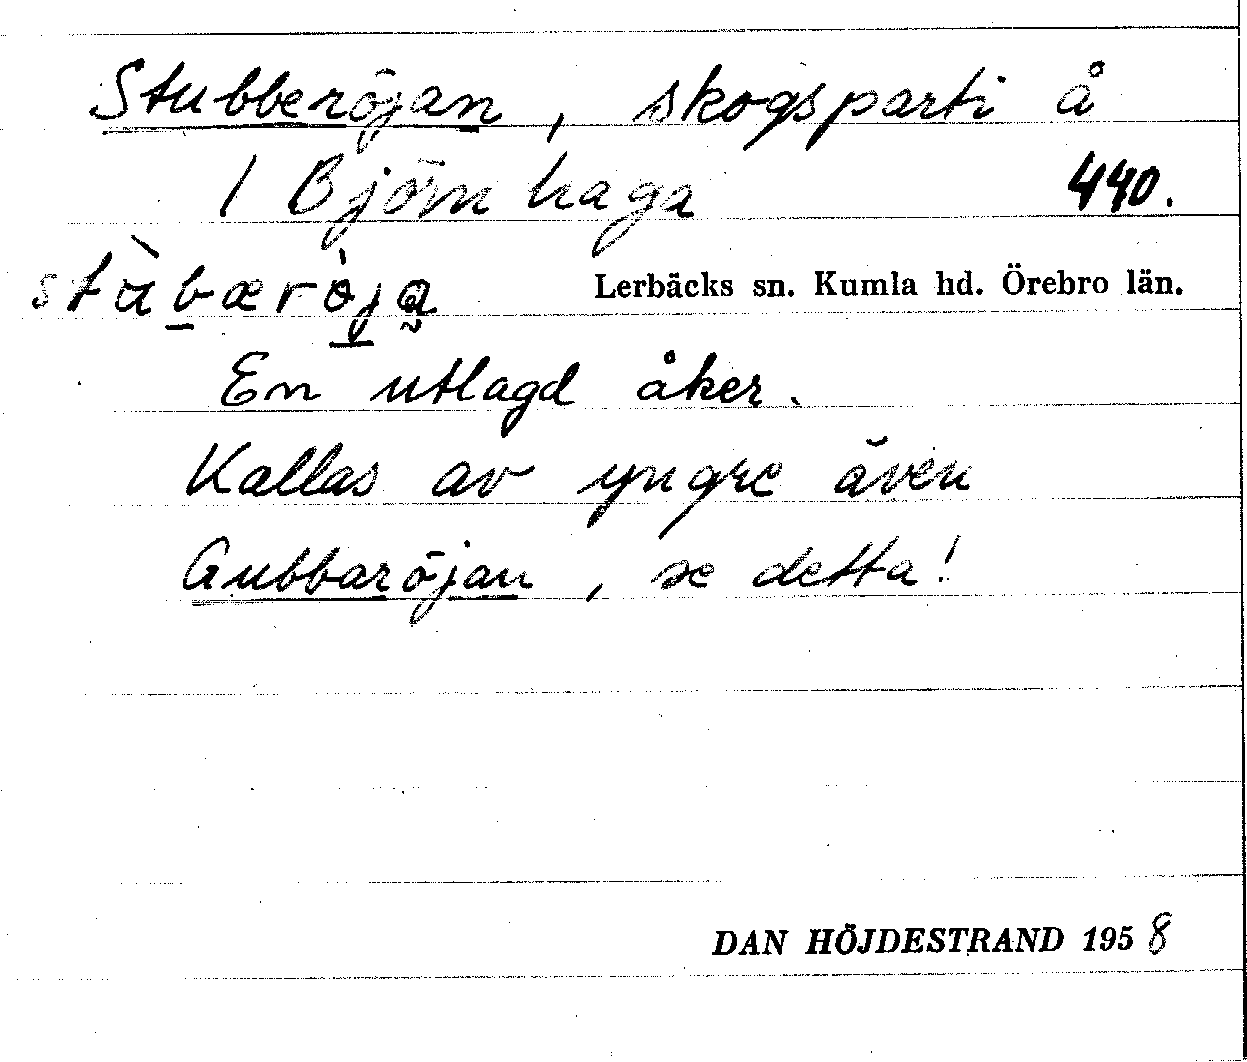 Stubberöjan, skogsparti å
1 Björnhaga 440.
stùbærö̀ja Lerbäcks sn. Kumla hd. Örebro län.
En utlagd åker.
Kallas av yngre även
Gubbaröjan, se detta!
DAN HÖJDESTRAND 1958